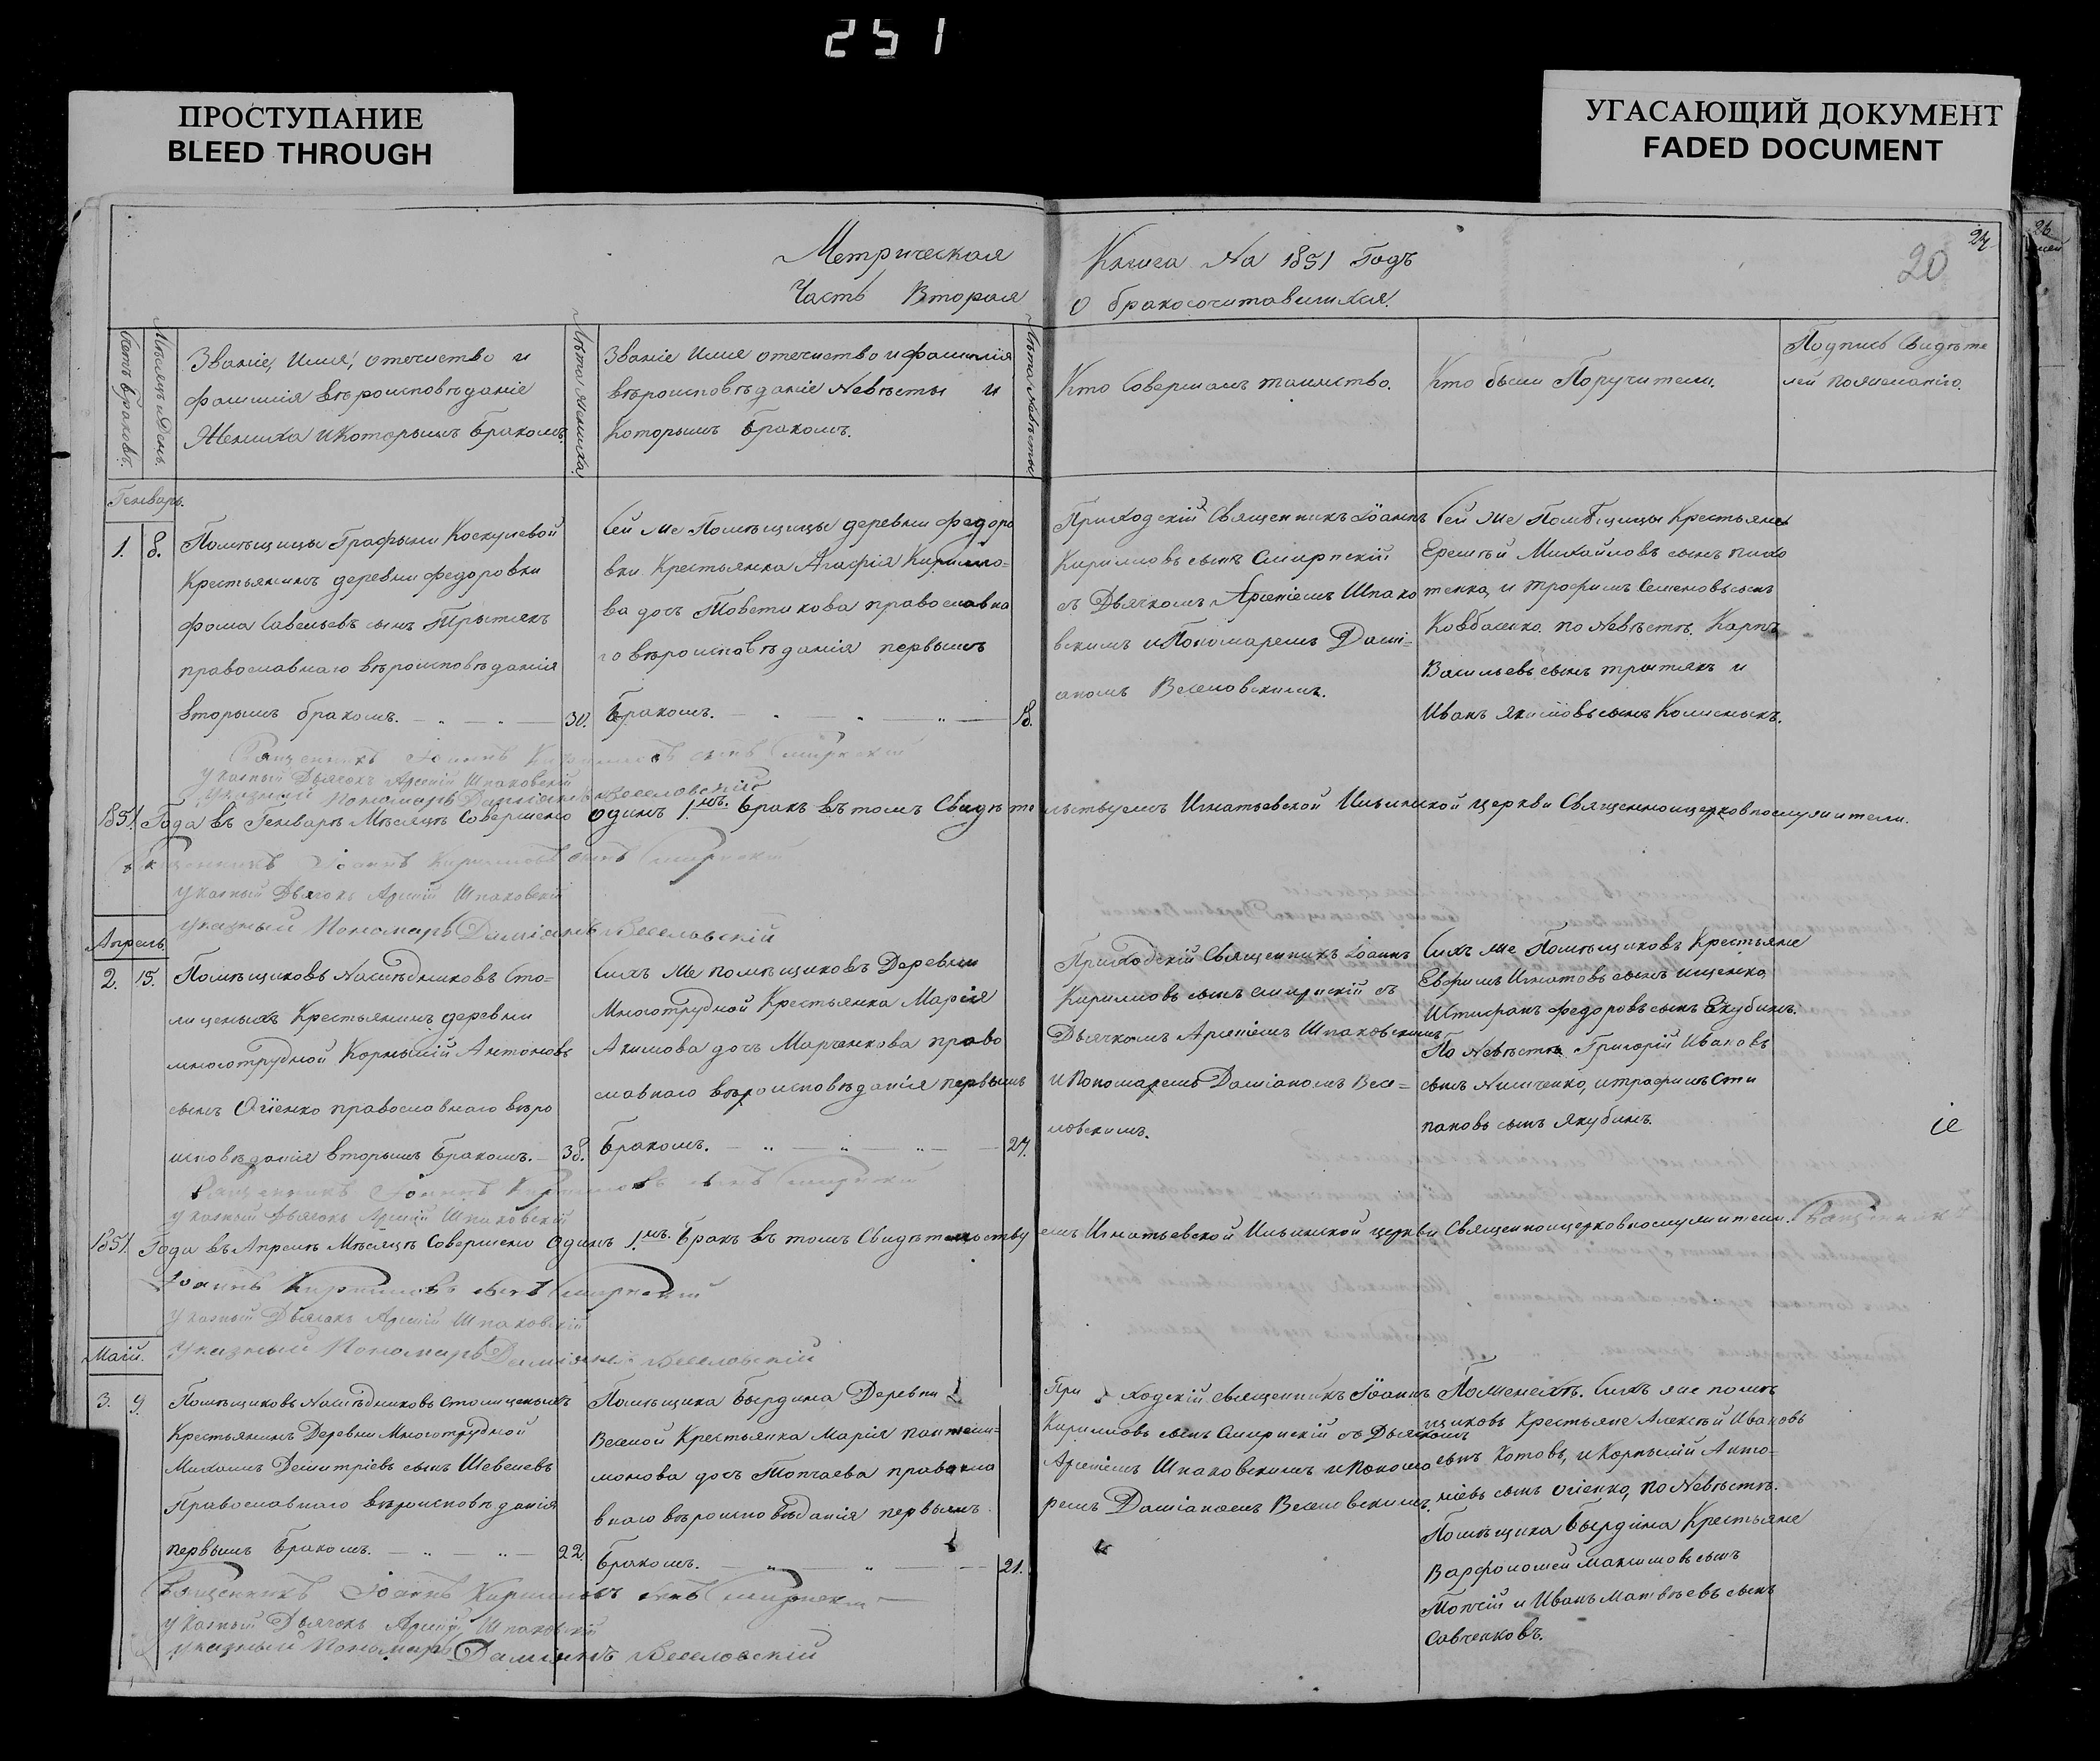 251
ПРОСТУПАНИЕ
BLEED THROUGH
УГАСАЮЩИЙ ДОКУМЕНТ
FADED DOCUMENT
Метрическая
Часть Вторая
Книга На 1851 Годъ
О бракосочитавшихся.
20
24
26
Счетъ браковъ.
Мѣсяцъ и День.
Званіе, Имя, отечиство и
фамилія вѣроисповѣданіе
Жениха и Которымъ бракомъ.
Лѣта жениха
Званіе Имя отечиство и фамилія
вѣроисповѣданіе Невѣсты и
Которымъ бракомъ.
Лѣта невѣсты
Кто Совершалъ таинство.
Кто были Поручители.
Подпись Свидѣте
лей по желанію.
Генварь.
1.
8.
Помѣщицы Графыни
Крестьянинъ деревни федоровки
фома Савельевъ сынъ Трытякъ
православнаго вѣроисповѣданія
вторымъ бракомъ.
30.
Сей же Помѣщицы деревни федоро
вки Крестьянка Агафія Кирило-
ва дочъ Товстикова православна
го вѣроисповѣданія первымъ
Бракомъ.
18.
Приходскій Священникъ Іоаннъ
Кириловъ сынъ Смирнскій
съ Дьячкомъ Арсеніемъ Шпако
вскимъ и Пономаремъ Дамі-
аномъ Веселовскимъ.
Сей же Помѣщицы Крестьяне
Еремѣй Михайловъ сынъ
тенко, и трофимъ Семеновъ сынъ
Ковбаско. по Невѣстѣ. Карпъ
Васильевъ сынъ трытякъ и
Иванъ Якимовъ сынъ Колисныкъ.
Священникъ Іоаннъ Кириловъ сынъ Смирнскій
Указный Дьячокъ Арсеній Шпаковскій
Указный Пономарь Даміанъ Веселовскій
1851. Года въ Генварѣ Мѣсяцѣ Совершено Одинъ 1.мъ. бракъ въ томъ Свидѣтельствуемъ Игнатьевской Ильинской церкви Священноицерковнослужители.
Священникъ Іоаннъ Кириловъ сынъ Смирнскій
Указный Дьячокъ Арсеній Шпаковскій
Указный Пономарь Даміанъ Веселовскій
Апрель.
2.
15.
Помѣщиковъ Наслѣдниковъ Сто-
лиценыхъ Крестьянинъ деревни
многотрудной Корнылій Антоновъ
сынъ Огіенко православнаго вѣро
исповѣданія вторымъ бракомъ.
38.
Сихъ же помѣщиковъ Деревни
Многотрудной Крестьянка Марія
Акимова дочъ Марченкова право
славнаго вѣроисповѣданія первымъ
бракомъ.
27.
Приходскій Священникъ Іоаннъ
Кириловъ сынъ Смирнскій съ
Дьячкомъ Арсеніемъ Шпаковскимъ
и Пономаремъ Даміаномъ Весе=
ловскимъ.
Сихъ же Помѣщиковъ Крестьяне
Ефимъ Игнатовъ сынъ ищенко,
федоровъ сынъ Якубинъ.
По Невѣстѣ Григорій Ивановъ
сынъ, и трафимъ Сти
пановъ сынъ Якубинъ.
Священникъ Іоаннъ Кириловъ сынъ Смирнскій
Указный Дьячокъ Арсеній Шпаковскій
1851. Года въ Апрелѣ Мѣсяцѣ Совершено Одинъ 1.мъ. бракъ въ томъ Свидѣтельствуемъ Игнатьевской Ильинской церкви Священноицерковнослужители. Священникъ
Іоаннъ Кириловъ сынъ Смирнскій
Указный Дьячокъ Арсеній Шпаковскій
Указный Пономарь Даміанъ Веселовскій
Маій.
3.
9.
Помѣщиковъ Наслѣдниковъ столиценыхъ
Крестьянинъ Деревни Многотрудной
Михаилъ Демитріевъ сынъ Шевелевъ
Православнаго вѣроисповѣданія
первымъ Бракомъ.
22.
Помѣщика Бырдина Деревни
Веселой Крестьянка Марія пантели-
монова дочъ Топчаева правосла
внаго вѣроисповѣданія первымъ
бракомъ.
21.
Приходскій священникъ Іоаннъ
Кириловъ сынъ Смирнскій съ Дьячкомъ
Арсеніемъ Шпаковскимъ и Понома
ремъ Даміаномъ Веселовскимъ.
По женехѣ. Сихъ же помѣ
щиковъ Крестьяне Алексѣй Ивановъ
сынъ Котовъ, и Корнылій Анто-
ніевъ сынъ огіенко, по Невѣстѣ.
Помѣщика Бырдина Крестьяне
Варфоломей Макимовъ сынъ
Топчій и Иванъ Матвѣевъ сынъ
Савченковъ.
Священникъ Іоаннъ Кириловъ сынъ Смирнскій
Указный Дьячокъ Арсеній Шпаковскій
Указный Пономарь Даміанъ Веселовскій